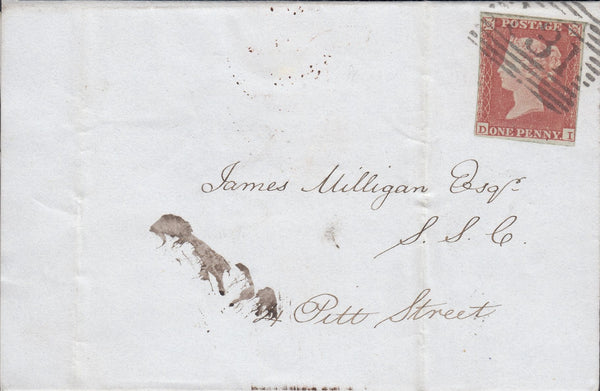 POSTAGE
D ONE PENNY I
31
James Milligan Esqr.
S. S. C.
Pitt Street